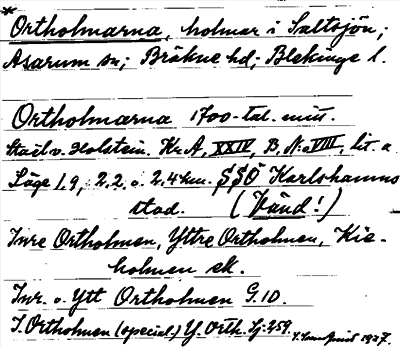 Ortholmarna, holmar i Saltsjön;
Asarum sn; Bräkne hd; Blekinge l.
Ortholmarna 1700-tal. mitt.
Stael v. Holstein. Kr. A, XXIV, B, N:o VIII, lit. a
Läge 1,9, 2,2 o. 2,4 km. SSÖ Karlshamns
stad. (Känd!)
Inre Ortholmen, Yttre Ortholmen, Kie-
holmen ek.
Inr. o. Ytt Ortholmen G.10.
I. Ortholmen (special.) Y. Orth. Sj. 259. 1937.